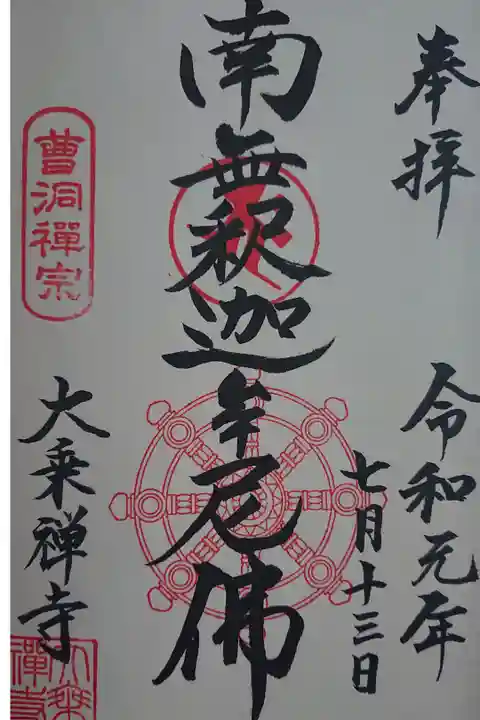 奉拝
令和元年
七月十三日
南無釈迦牟尼佛
曹洞禪宗
大乗禅寺
大乗
禪寺